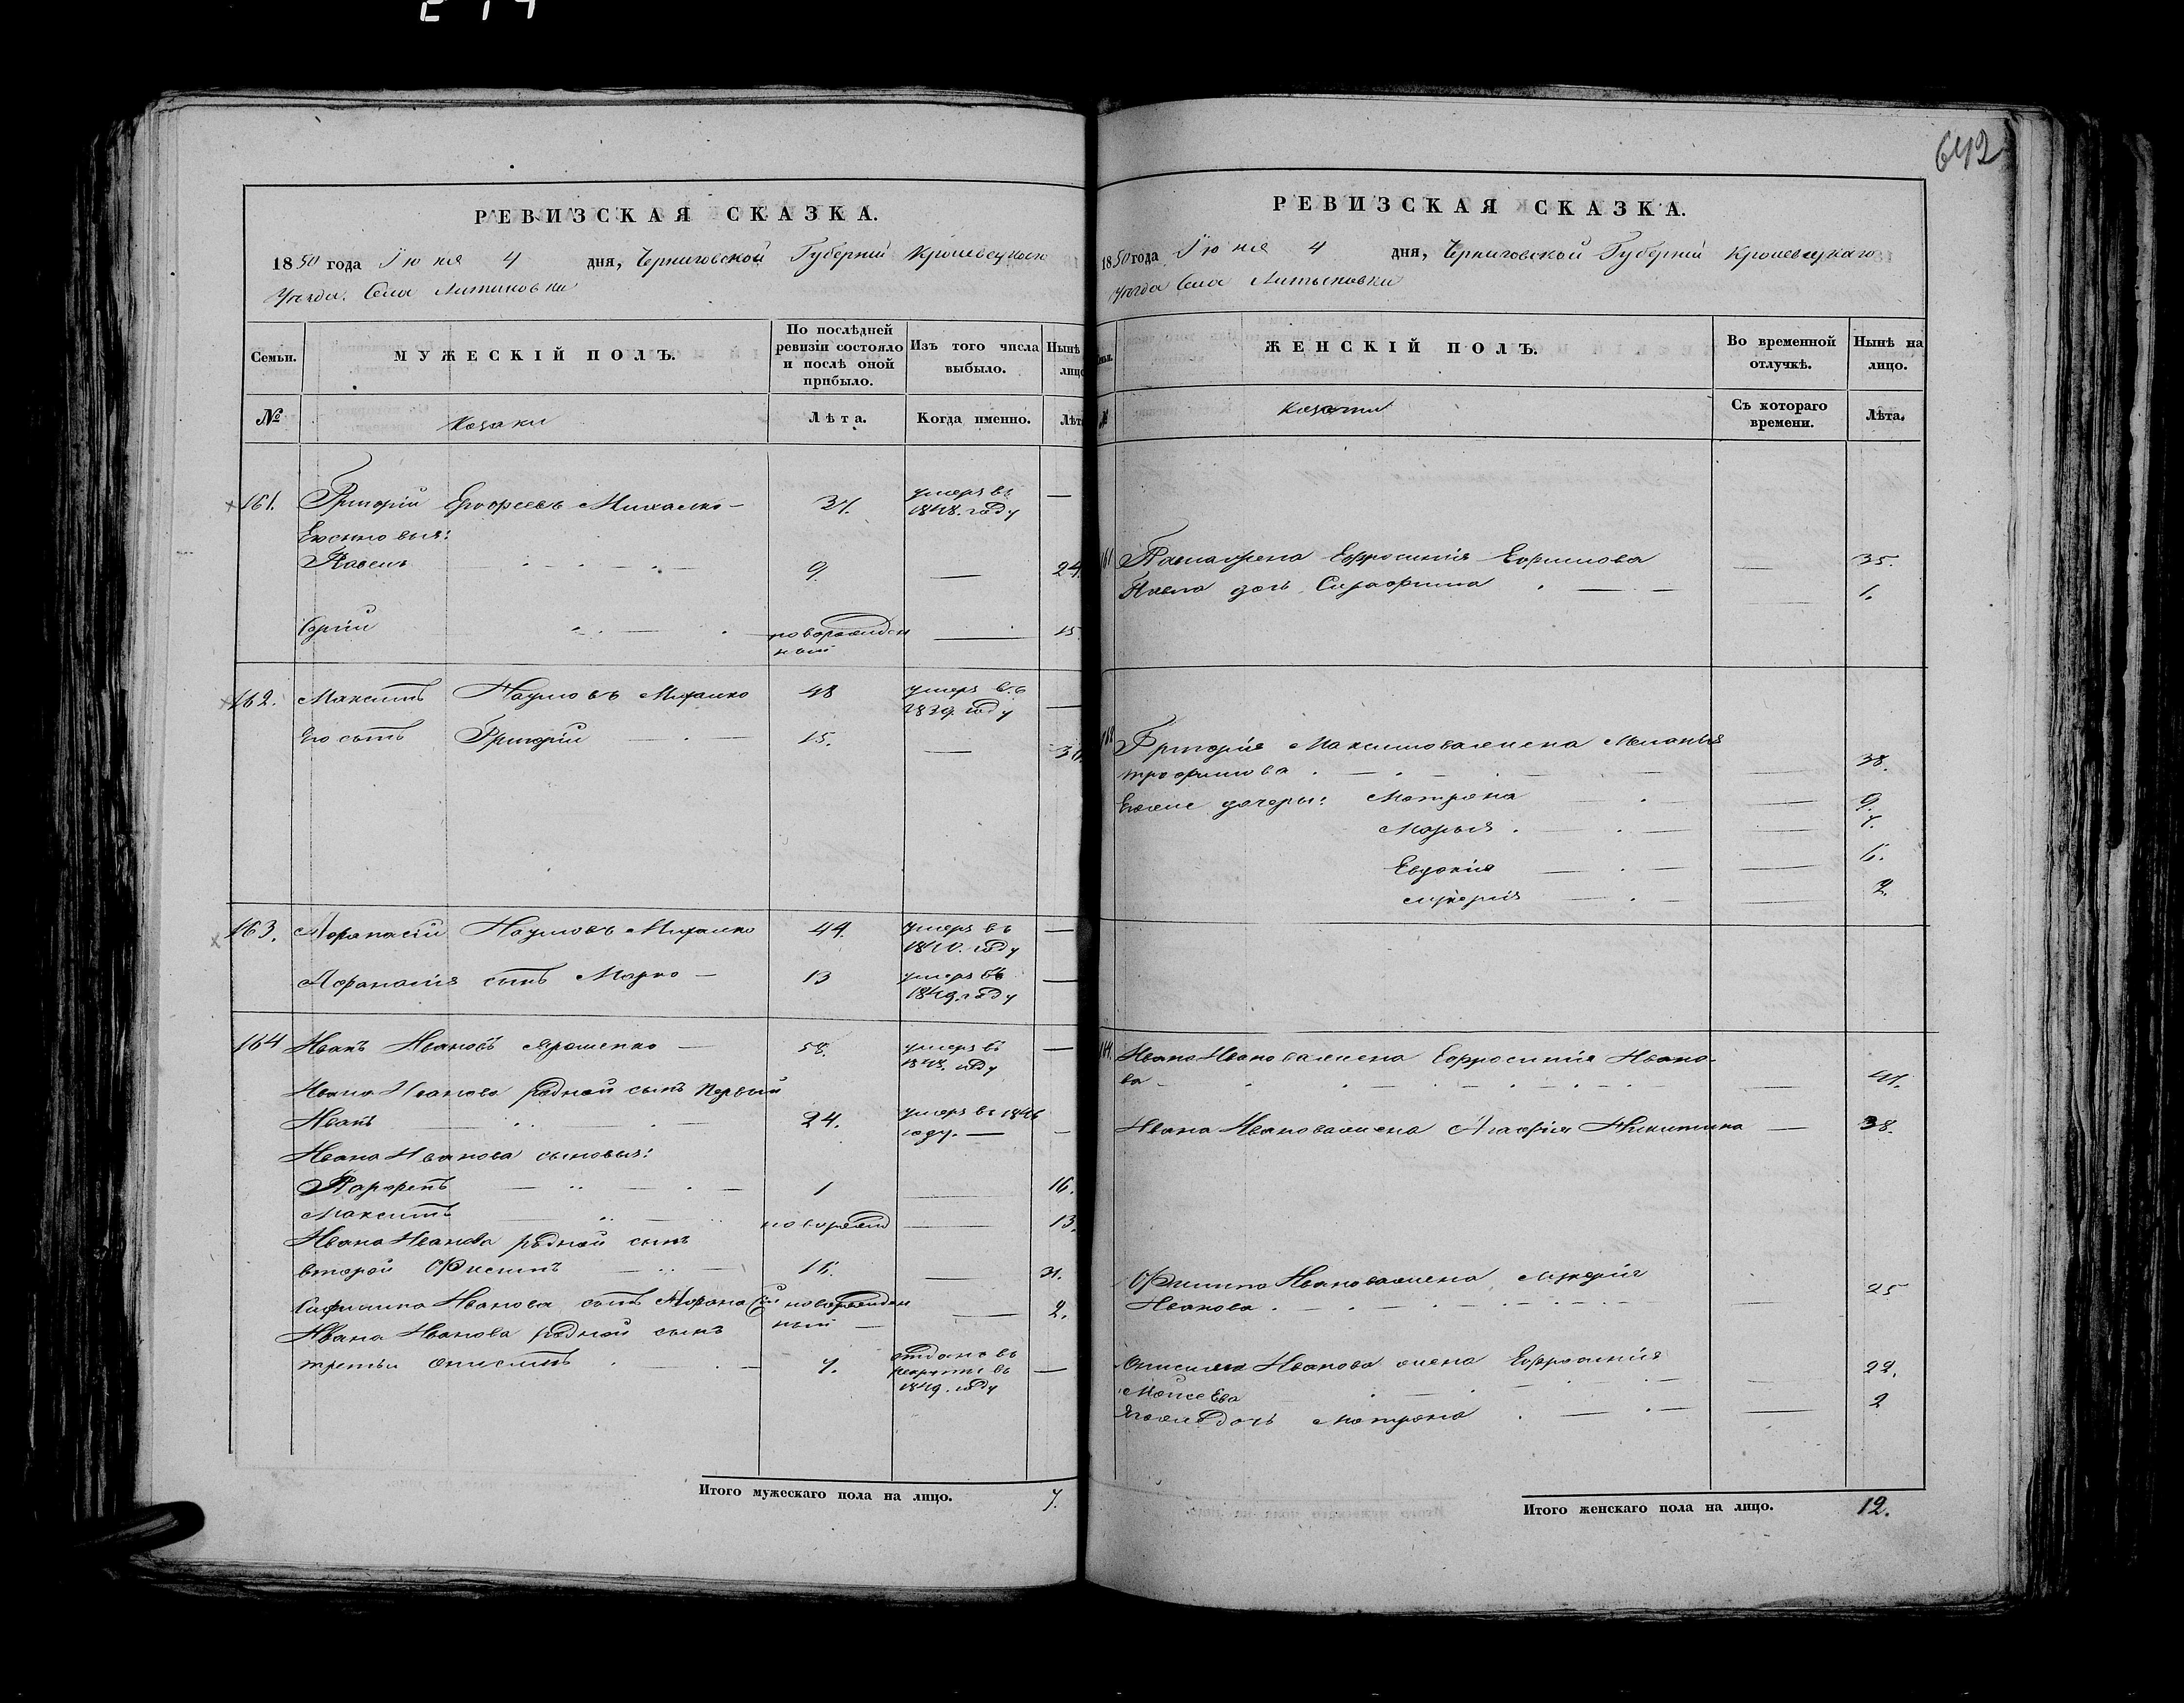 642
РЕВИЗСКАЯ СКАЗКА.
1850 года Іюня 4 дня, Черниговской Губерніи Кролевецкаго
Уѣзда. Села Литвиновки
Семьи.
МУЖЕСКІЙ ПОЛЪ.
По послѣдней ревизіи состояло и послѣ оной прибыло.
Изъ того числа выбыло.
Нынѣ лицо
№
Козаки
Лѣта.
Когда именно.
Лѣт
161. Григорій Ерофеевъ Михалко — умеръ въ —
1848. году
Сыновья:
Павелъ 9. — 24.
новорожден — 15
ный
162. Максимъ Наумовъ Михалко 48 умеръ въ —
1839. году
Его сынъ Григорій 15. — 30.
163. Афанасій Наумовъ Михалко 44. умеръ въ —
1840. году
Афанасія сынъ Марко — 13 умеръ въ —
1849. году
164 Иванъ Ивановъ Ярошенко — 58. умеръ въ —
1848. году
Ивана Иванова родной сынъ первый
Иванъ 24. умеръ въ 1846
году. —
Ивана Иванова сыновья:
Парфенъ 1 — 16.
Максимъ новорожд — 13.
Ивана Иванова родной сынъ
второй — 31.
Иванова сынъ Афанасій новорожден — 2.
ный —
Ивана Иванова родной сынъ
третьи Онисимъ 7. отданъ въ —
рекруты въ
1849. году
Итого мужескаго пола на лицо. 7.
РЕВИЗСКАЯ СКАЗКА.
1850 года Іюня 4 дня, Черниговской Губерніи Кролевецкаго
Уѣзда Села Литвиновки
ЖЕНСКІЙ ПОЛЪ.
Во временной отлучкѣ.
Нынѣ на лицо.
№
Козачки
Съ котораго времени.
Лѣта.
161 Павла жена Ефросинія Ефимова — 35.
Павла дочь Серафима — 1.
162 Григорія Максимова жена Меланія
Трофимова — 38.
Ихже дочери: Матрона — 9.
Марья — 7.
Евдокія — 6.
Лукерія — 2.
164. Ивана Иванова жена Ефросинія Ивано-
ва —
Ивана Иванова жена Агафія Никитина — 38.
Иванова жена Лукерія
Иванова — 25
Онисима Иванова жена Ефросинія
Моисеева — 22.
Ихже дочь Матрона — 2
Итого женскаго пола на лицо. 12.